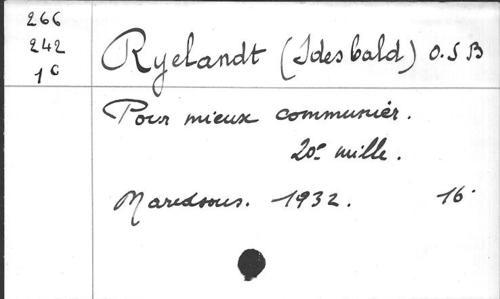 266
242
1c
Ryelandt (Idesbald) O.S.B
Pour mieux communier.
20e mille.
Maredsous. 1932. 16°